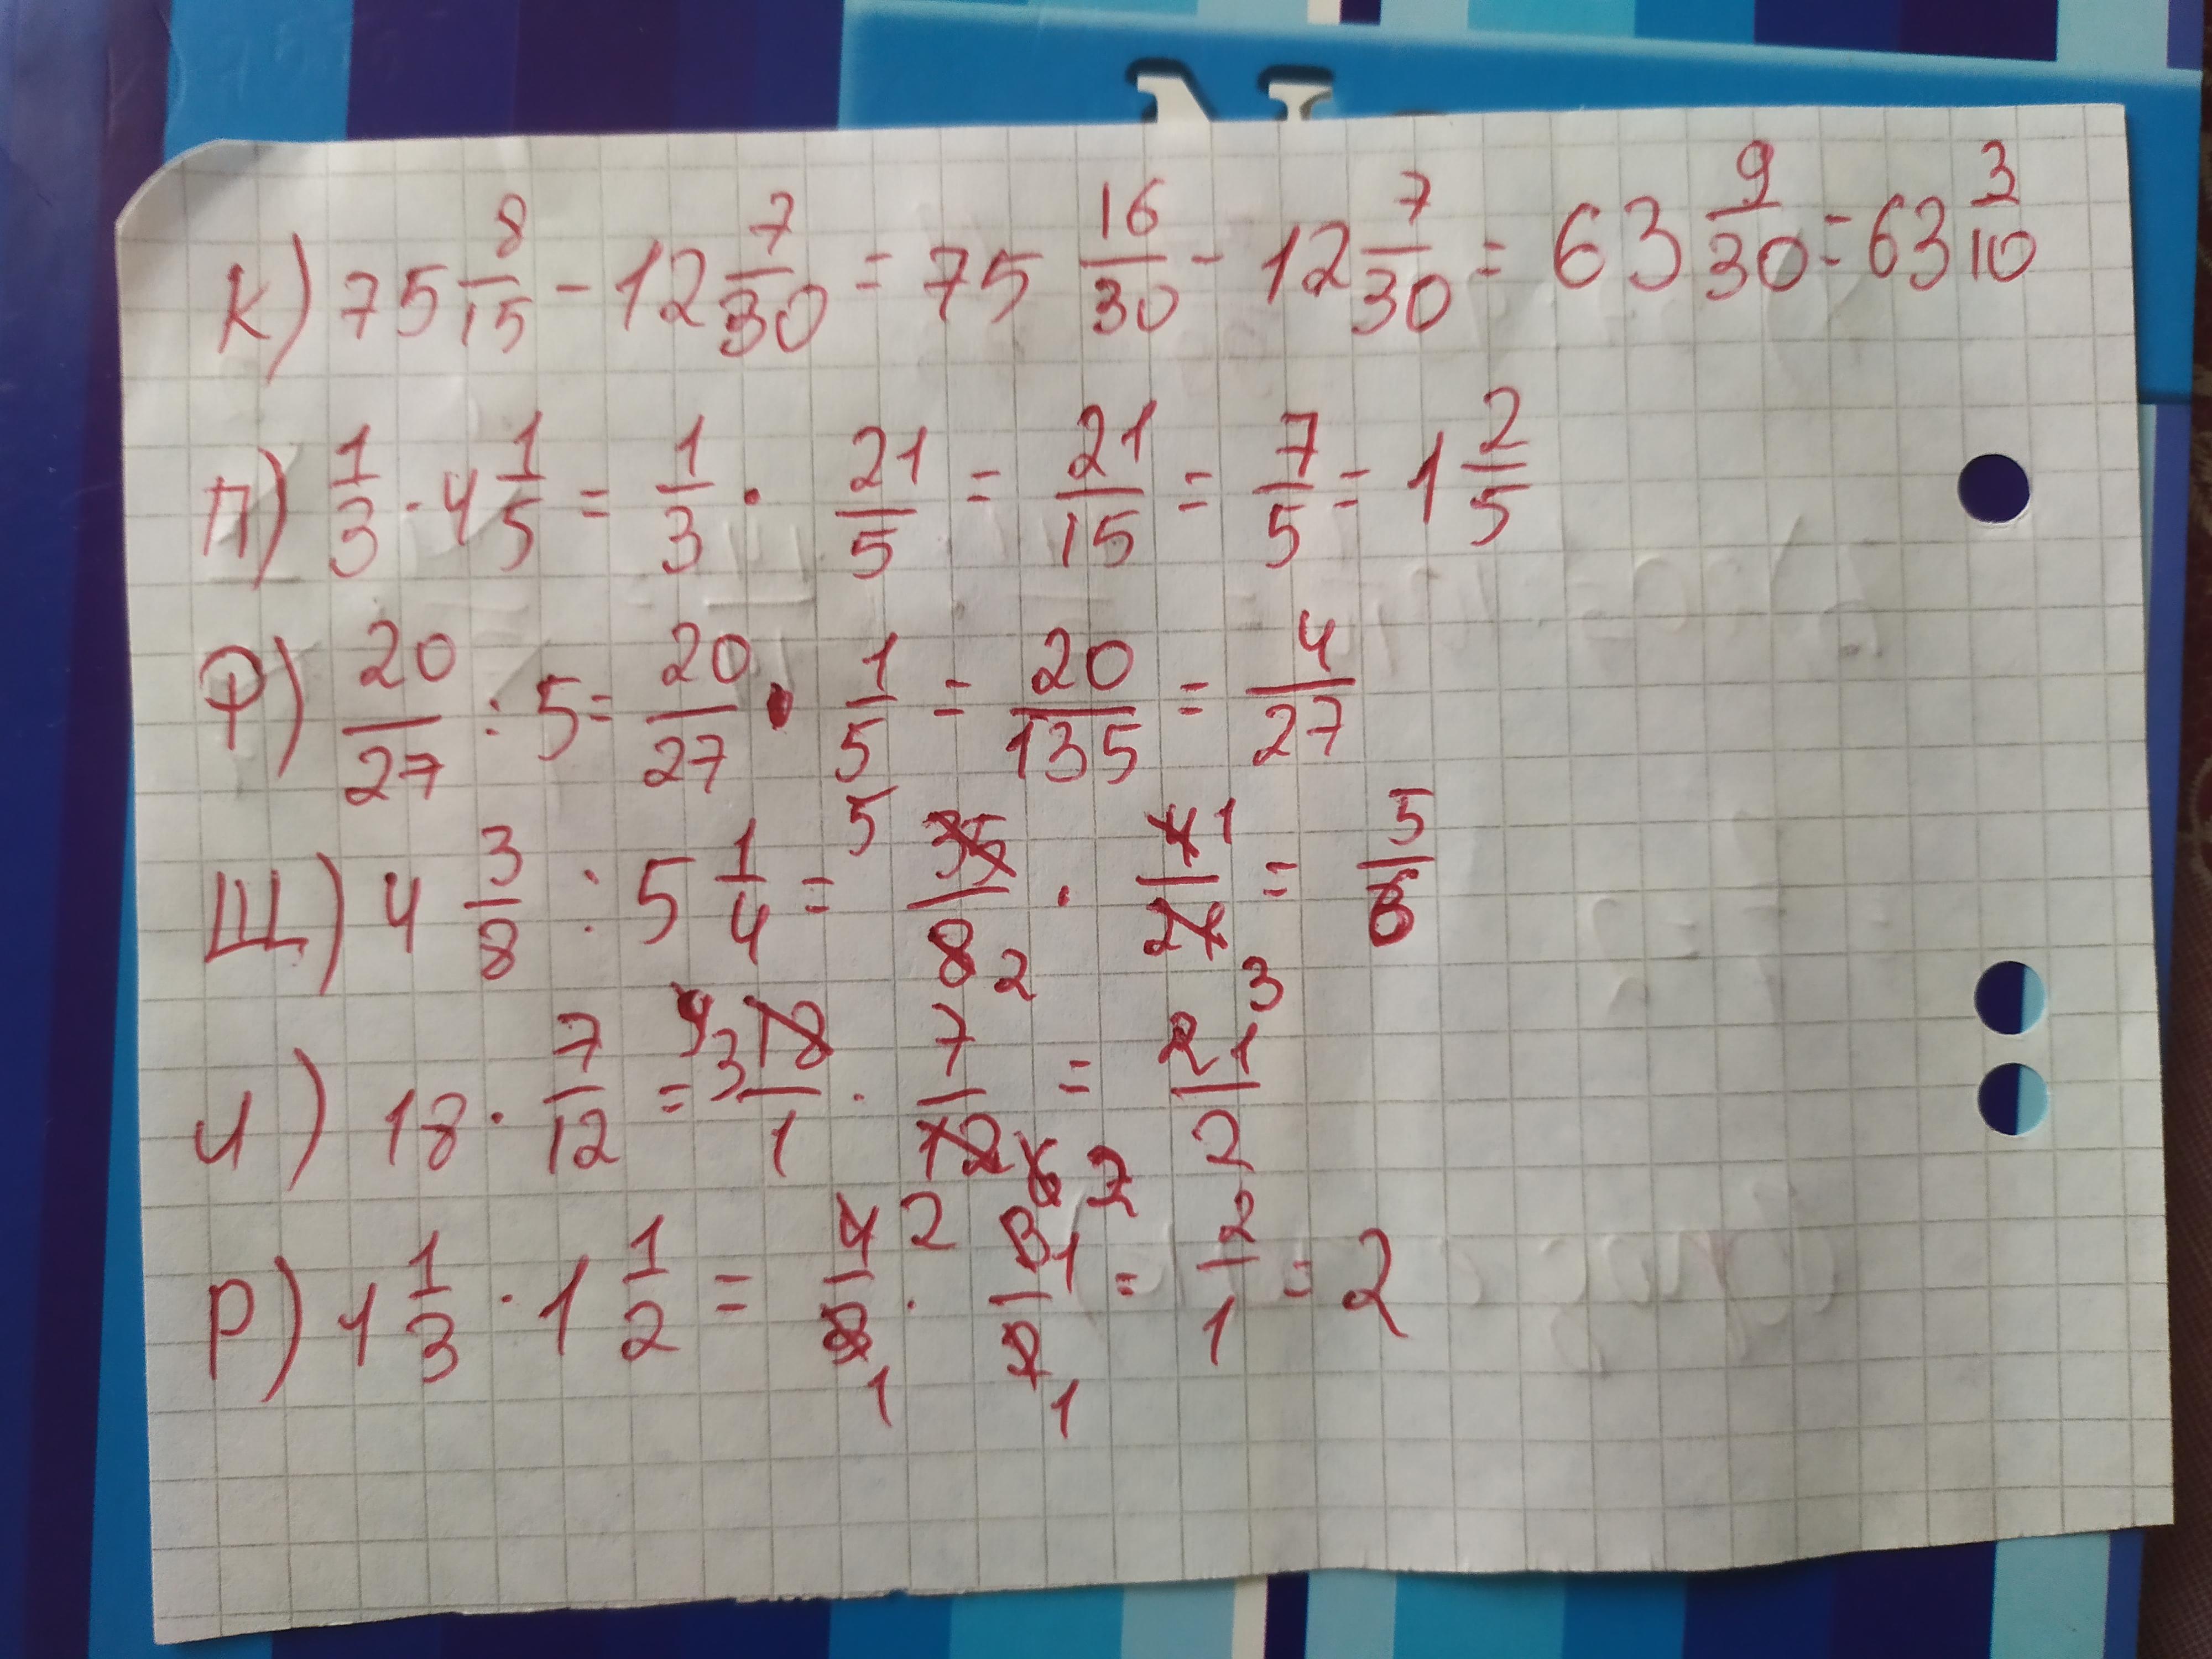 К) 75 8/15 - 12 7/30 = 75 16/30 - 12 7/30 = 63 9/30 = 63 3/10
П) 1/3 · 4 1/5 = 1/3 · 21/5 = 21/15 = 7/5 = 1 2/5
Р) 20/27 : 5 = 20/27 · 1/5 = 20/135 = 4/27
Щ) 4 3/8 : 5 1/4 = 5 35/8 2 · 4 1/21 3 = 5/6
И) 18 · 7/12 = 3 18/1 · 7/12 6 2 = 21/2
Р) 1 1/3 · 1 1/2 = 4 2/3 1 · 3 1/2 1 = 2/1 = 2